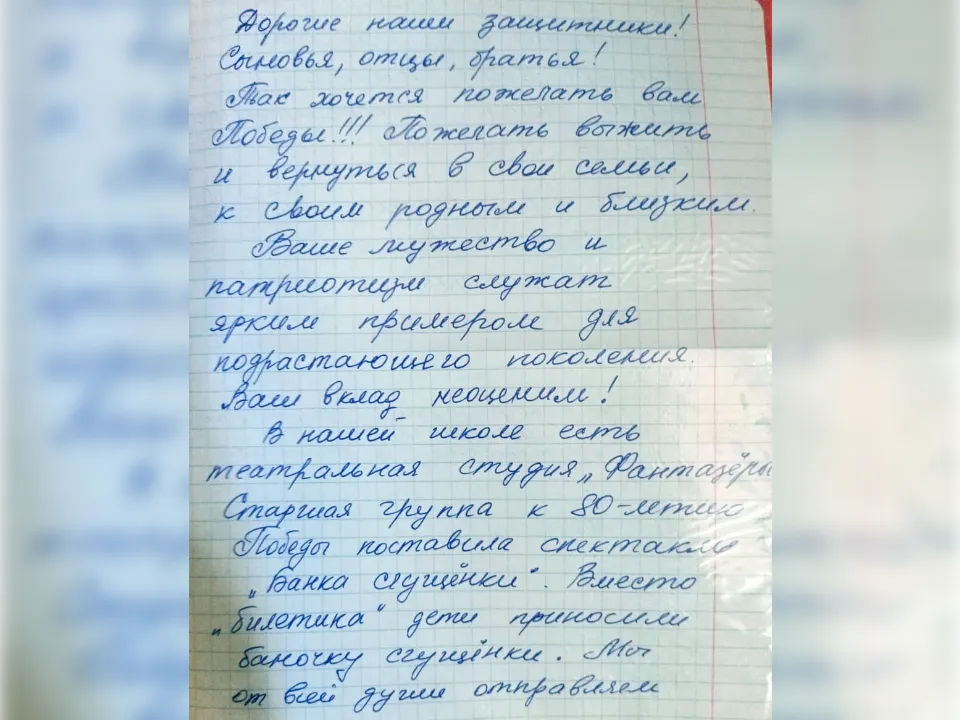 Дорогие наши защитники!
Сыновья, отцы, братья!
Так хочется пожелать вам
Победы!!! Пожелать выжить
и вернуться в свои семьи,
к своим родным и близким.
Ваше мужество и
патриотизм служат
ярким примером для
подрастающего поколения.
Ваш вклад неоценим!
В нашей школе есть
театральная студия „Фантазёры
Старшая группа к 80-летию
Победы поставила спектакль
„Банка сгущёнки". Вместо
„билетика" дети приносили
баночку сгущёнки. Мы
от всей души отправляем